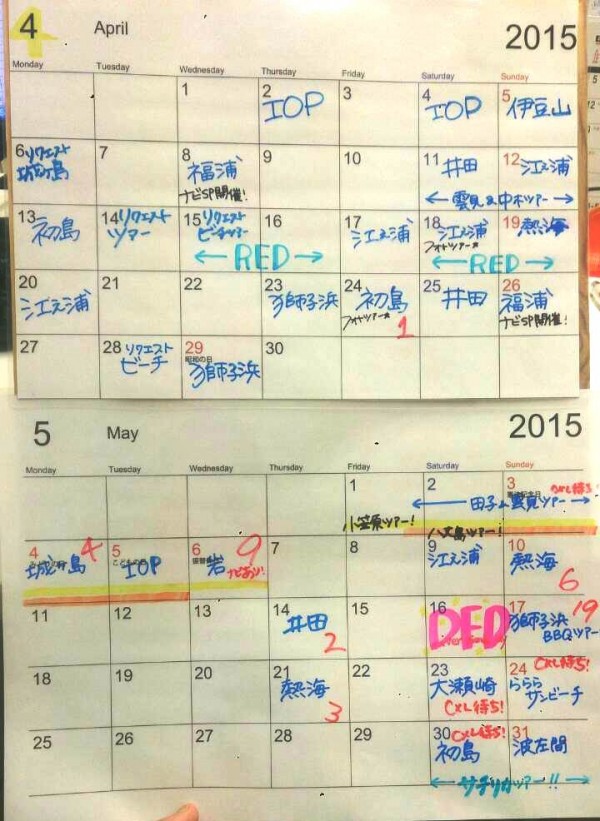 4 April 2015
Monday Tuesday Wednesday Thursday Friday Saturday Sunday
1 2 3 4 5
IOP IOP 伊豆山
6 7 8 9 10 11 12
リクエスト
城ヶ島 福浦 井田 江之浦
ナビSP開催!
← 雲見&中木ツアー →
13 14 15 16 17 18 19
初島 リクエスト リクエスト 江之浦 江之浦 熱海
ツアー ビーチツアー フォトツアー★
← RED → ← RED →
20 21 22 23 24 25 26
江之浦 獅子浜 初島 井田 福浦
フォトツアー★ ナビSP開催!
1
27 28 29 30
リクエスト 昭和の日
ビーチ 獅子浜
5 May 2015
Monday Tuesday Wednesday Thursday Friday Saturday Sunday
1 2 3
CXL待ち!
← 田子&雲見ツアー →
小笠原ツアー! 八丈島ツアー!
4 5 6 7 8 9 10
4 こどもの日 9
城ヶ島 IOP 岩 江之浦 熱海
ナビあり! 6
11 12 13 14 15 16 17
井田 DED 獅子浜 19
2 BBQツアー
18 19 20 21 22 23 24
CXL待ち!
熱海 大瀬崎 らららサンビーチ
3 CXL待ち!
25 26 27 28 29 30 31
CXL待ち!
初島 波左間
← サチリカツアー!! →